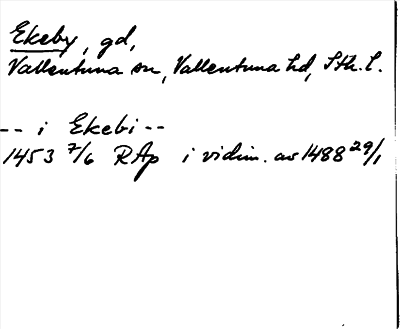 Ekeby, gd,
Vallentuna sn, Vallentuna hd, Sth. l.
-- i Ekebi --
1453 7/6 RAp i vidim. av 1488 29/1